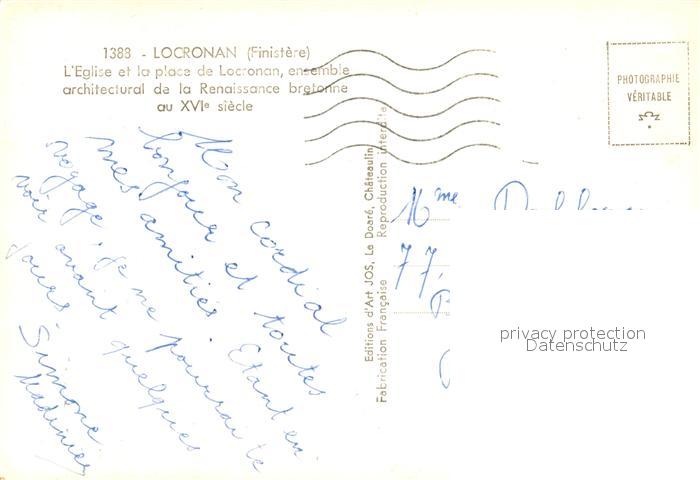 1383 - LOCRONAN (Finistère)
L'Eglise et la place de Locronan, ensemble
architectural de la Renaissance bretonne
au XVIe siècle
PHOTOGRAPHIE
VÉRITABLE
Mon cordial
bonjour et toutes
mes amitiés. Etant en
voyage, je ne pourrai te
voir avant quelques
jours.
Simone
Editions d'Art JOS, Le Doaré, Châteaulin
Fabrication Française Reproduction interdite
Mme
77,
privacy protection
Datenschutz